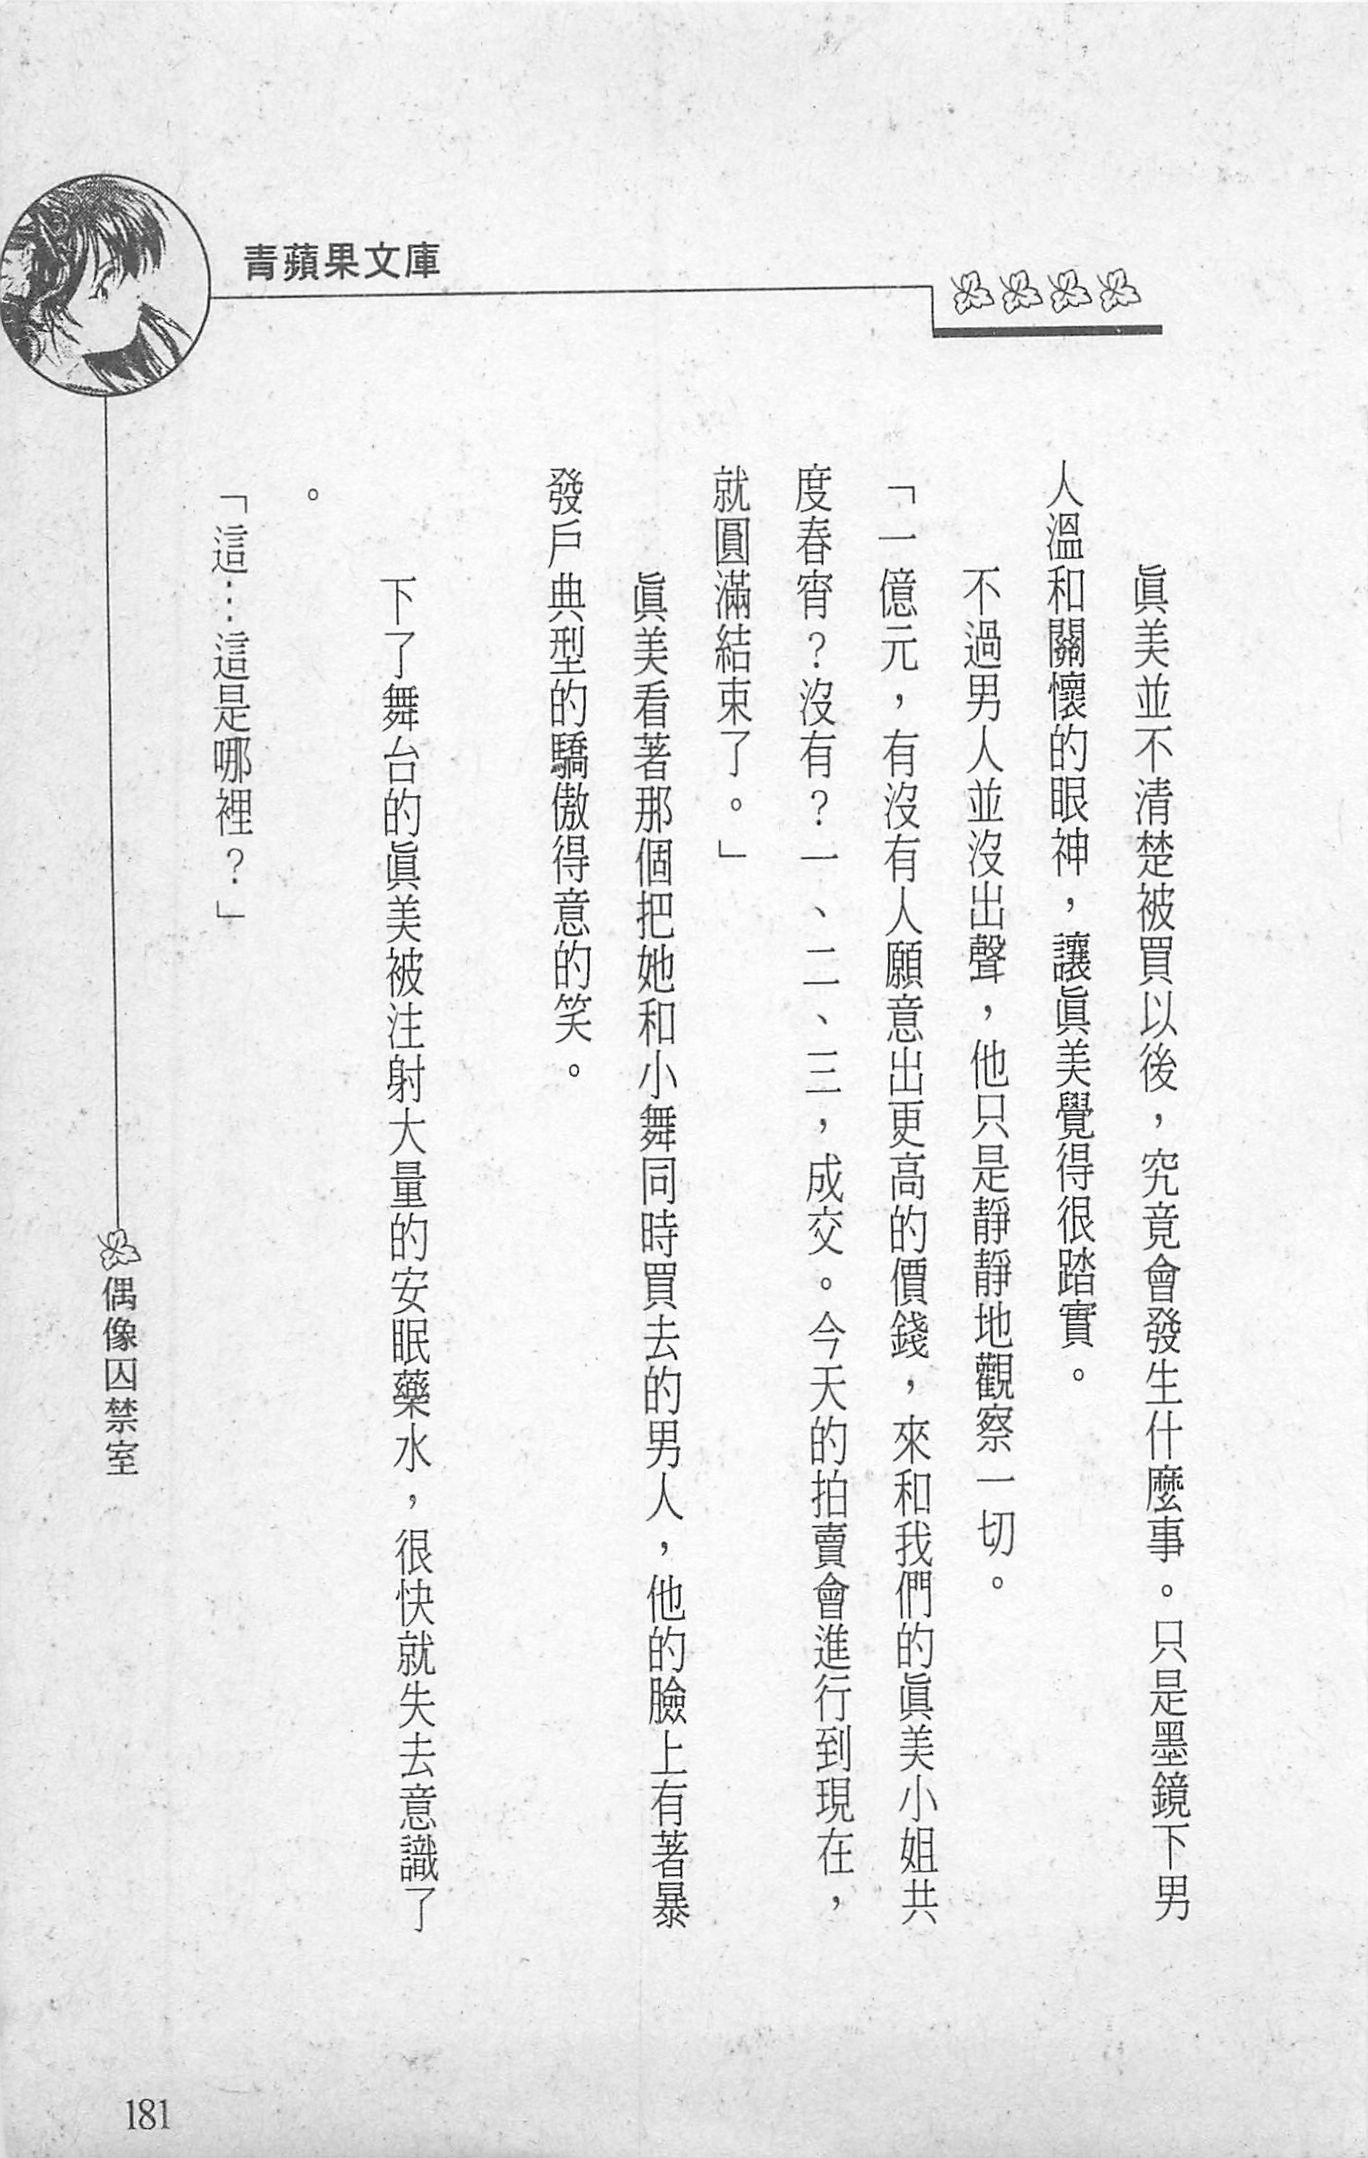 青蘋果文庫
眞美並不清楚被買以後，究竟會發生什麼事。只是墨鏡下男
人溫和關懷的眼神，讓眞美覺得很踏實。
不過男人並沒出聲，他只是靜靜地觀察一切。
「一億元，有沒有人願意出更高的價錢，來和我們的眞美小姐共
度春宵？沒有？一、二、三，成交。今天的拍賣會進行到現在，
就圓滿結束了。」
眞美看著那個把她和小舞同時買去的男人，他的臉上有著暴
發戶典型的驕傲得意的笑。
下了舞台的眞美被注射大量的安眠藥水，很快就失去意識了
。
「這…這是哪裡？」
偶像囚禁室
181